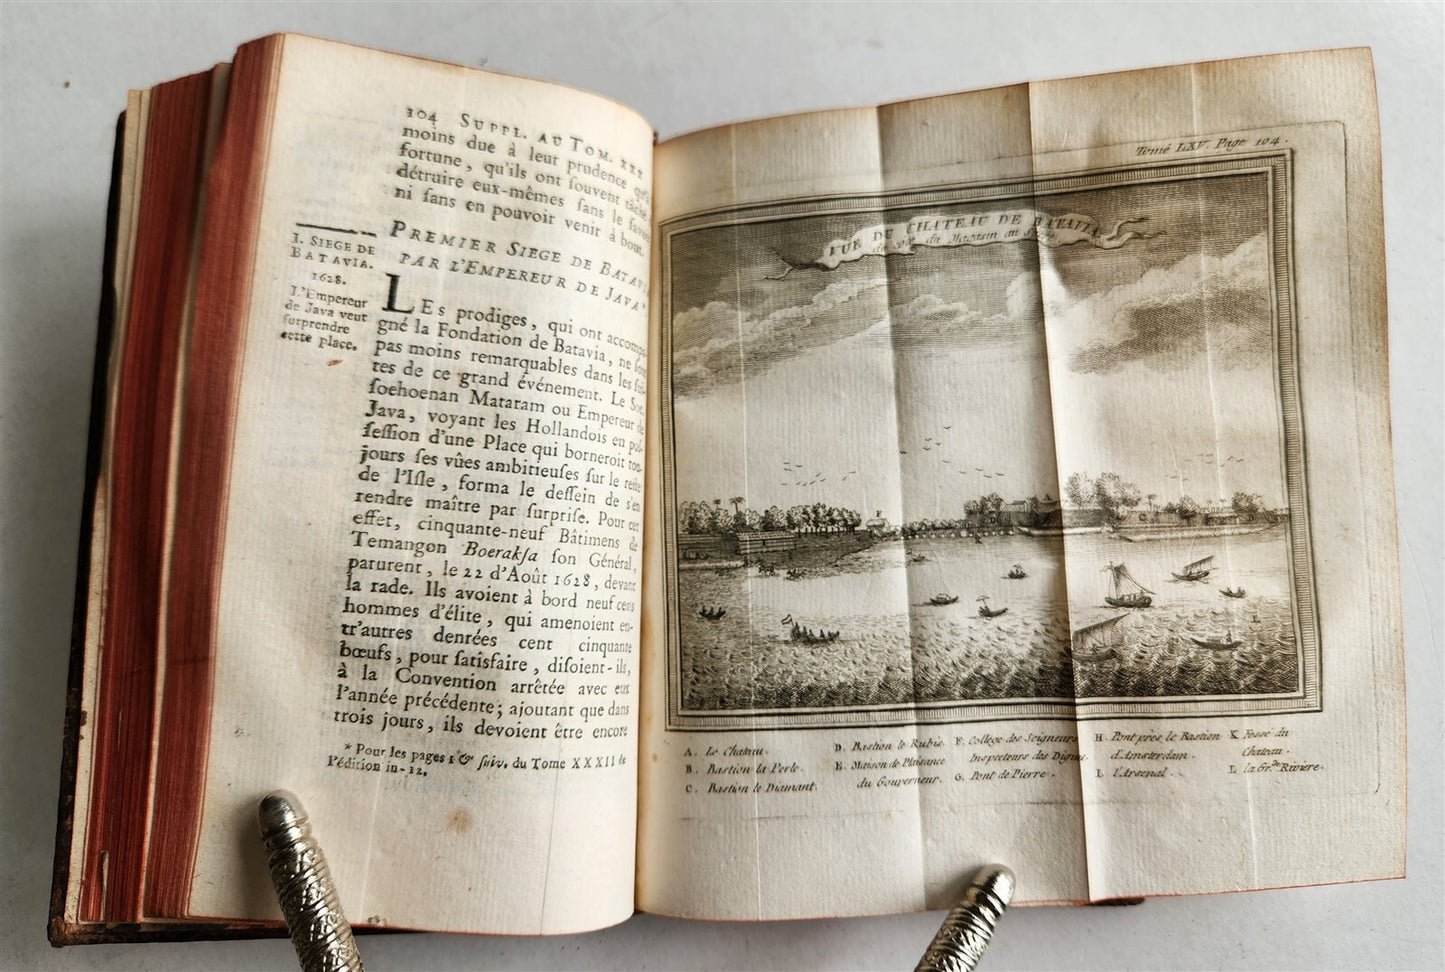 104 SUPPL. AU TOM. XXX
moins due à leur prudence qu'à
fortune, qu'ils ont souvent tâché
détruire eux-mêmes sans le savoir
ni sans en pouvoir venir à bout.
PREMIER SIEGE DE BATAVI
PAR L'EMPEREUR DE JAVA*.
I. SIEGE DE
BATAVIA.
1628.
L'Empereur
de Java veut
surprendre
cette place.
LES prodiges, qui ont accompa-
gné la Fondation de Batavia, ne sont
pas moins remarquables dans les sui-
tes de ce grand événement. Le Soe-
soehoenan Mataram ou Empereur de
Java, voyant les Hollandois en pos-
session d'une Place qui borneroit tou-
jours ses vûes ambitieuses sur le reste
de l'Isle, forma le dessein de s'en
rendre maître par surprise. Pour cet
effet, cinquante-neuf Bâtimens de
Temangon Boeraksa son Général,
parurent, le 22 d'Août 1628, devant
la rade. Ils avoient à bord neuf cens
hommes d'élite, qui amenoient en-
tr'autres denrées cent cinquante
bœufs, pour satisfaire, disoient-ils,
à la Convention arrêtée avec eux
l'année précédente; ajoutant que dans
trois jours, ils devoient être encore
* Pour les pages 1 & suiv. du Tome XXXII de
l'édition in-12.
Tome LXV. Page 104.
VUE DU CHATEAU DE BATAVIA
du coté du Magasin au
A. Le Chateau.
B. Bastion la Perle.
C. Bastion le Diamant.
D. Bastion le Rubis.
E. Maison de Plaisance
du Gouverneur.
F. College des Seigneurs
Inspecteurs des Digues.
G. Pont de Pierre.
H. Pont près le Bastion
d'Amsterdam.
I. l'Arsenal.
K. Fosse du
Chateau.
L. la Gr.de Riviere.
L